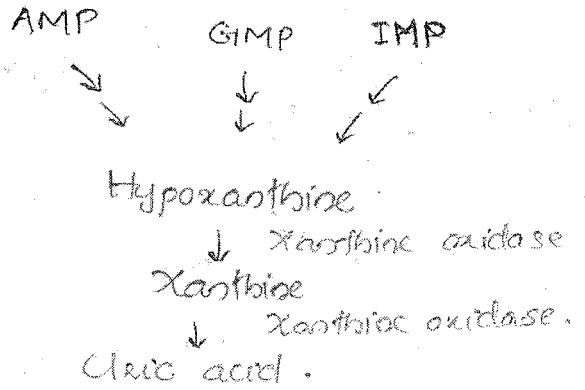 AMP GMP IMP
Hypoxanthine
Xanthine oxidase
Xanthine
Xanthine oxidase.
Uric acid.